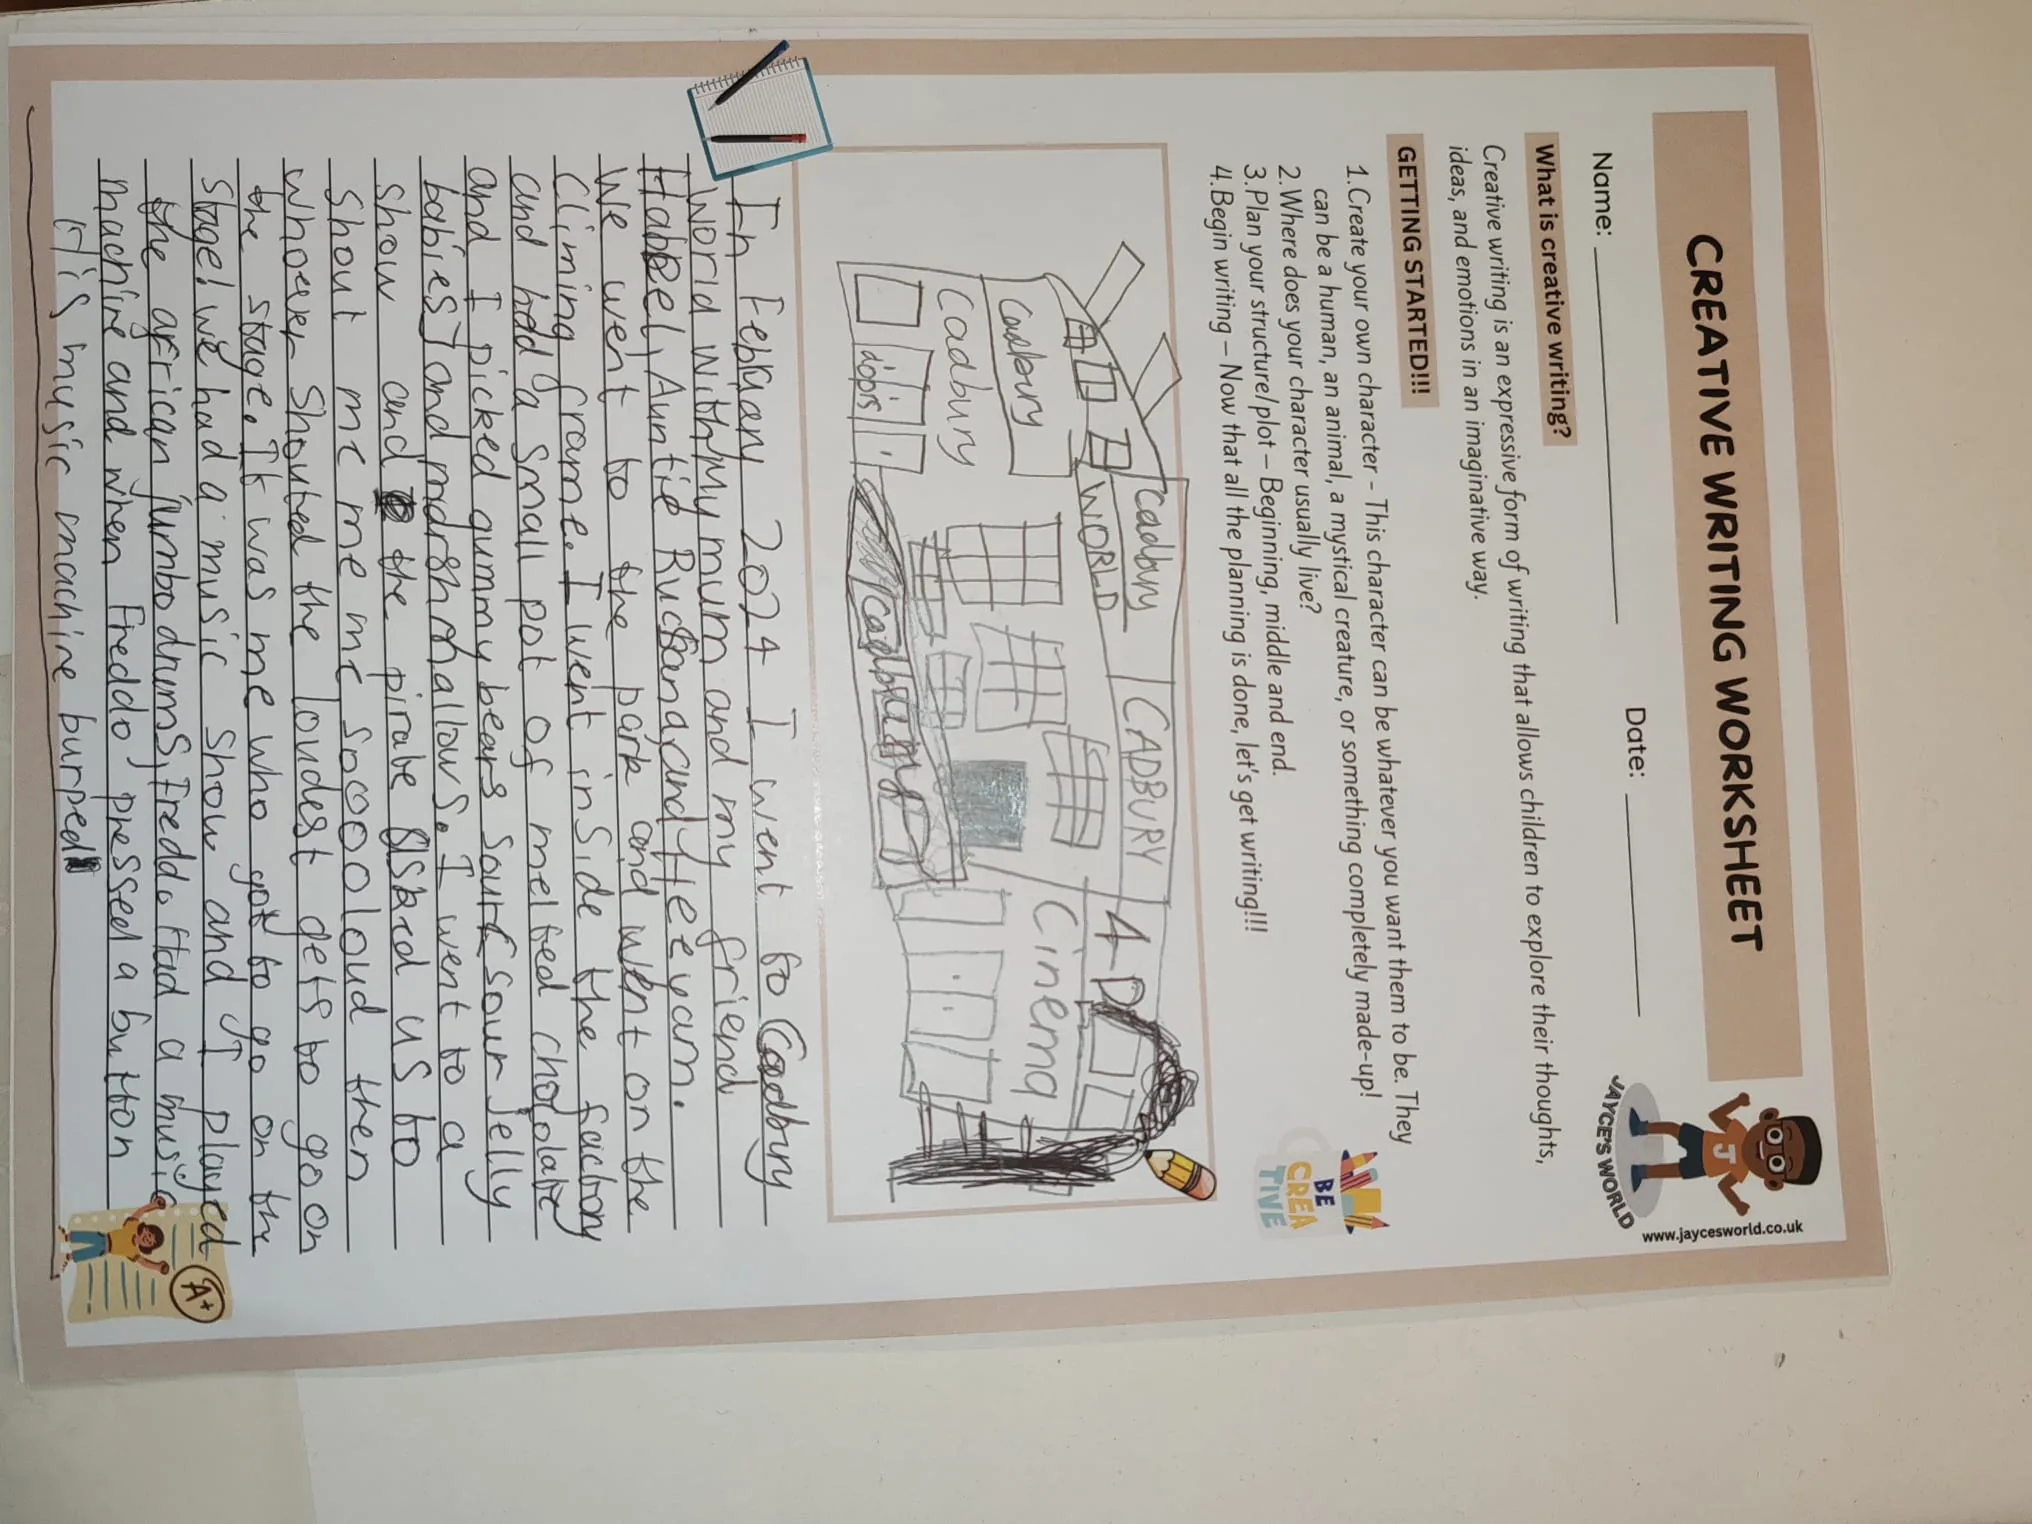 CREATIVE WRITING WORKSHEET
JAYCE'S WORLD
www.jaycesworld.co.uk
Name:
Date:
What is creative writing?
Creative writing is an expressive form of writing that allows children to explore their thoughts,
ideas, and emotions in an imaginative way.
GETTING STARTED!!!
1.Create your own character – This character can be whatever you want them to be. They
can be a human, an animal, a mystical creature, or something completely made-up!
2.Where does your character usually live?
3.Plan your structure/plot – Beginning, middle and end.
4.Begin writing – Now that all the planning is done, let's get writing!!!
BE
CREA
TIVE
Cadbury CADBURY 4D
WORLD
Cadbury
Cadbury
Cinema
Cadbury
In Febuary 2024 I went to Cadbury
World with My mum and my friend
Habeel, Auntie and
We went to the park and went on the
Climing frame. I went inside the factory
and had a small pot of melted chocolate
and I picked gummy bears sour sour jelly
babies and marshmallows. I went to a
show and the pirate asked us to
shout me me me me soooo loud then
whoever Shouted the loudest gets to go on
the stage. It was me who got to go on the
Stage! we had a music show and I played
the african jumbo drums, Freddo Had a music
machine and when Freddo pressed a button
His music machine burped
A+